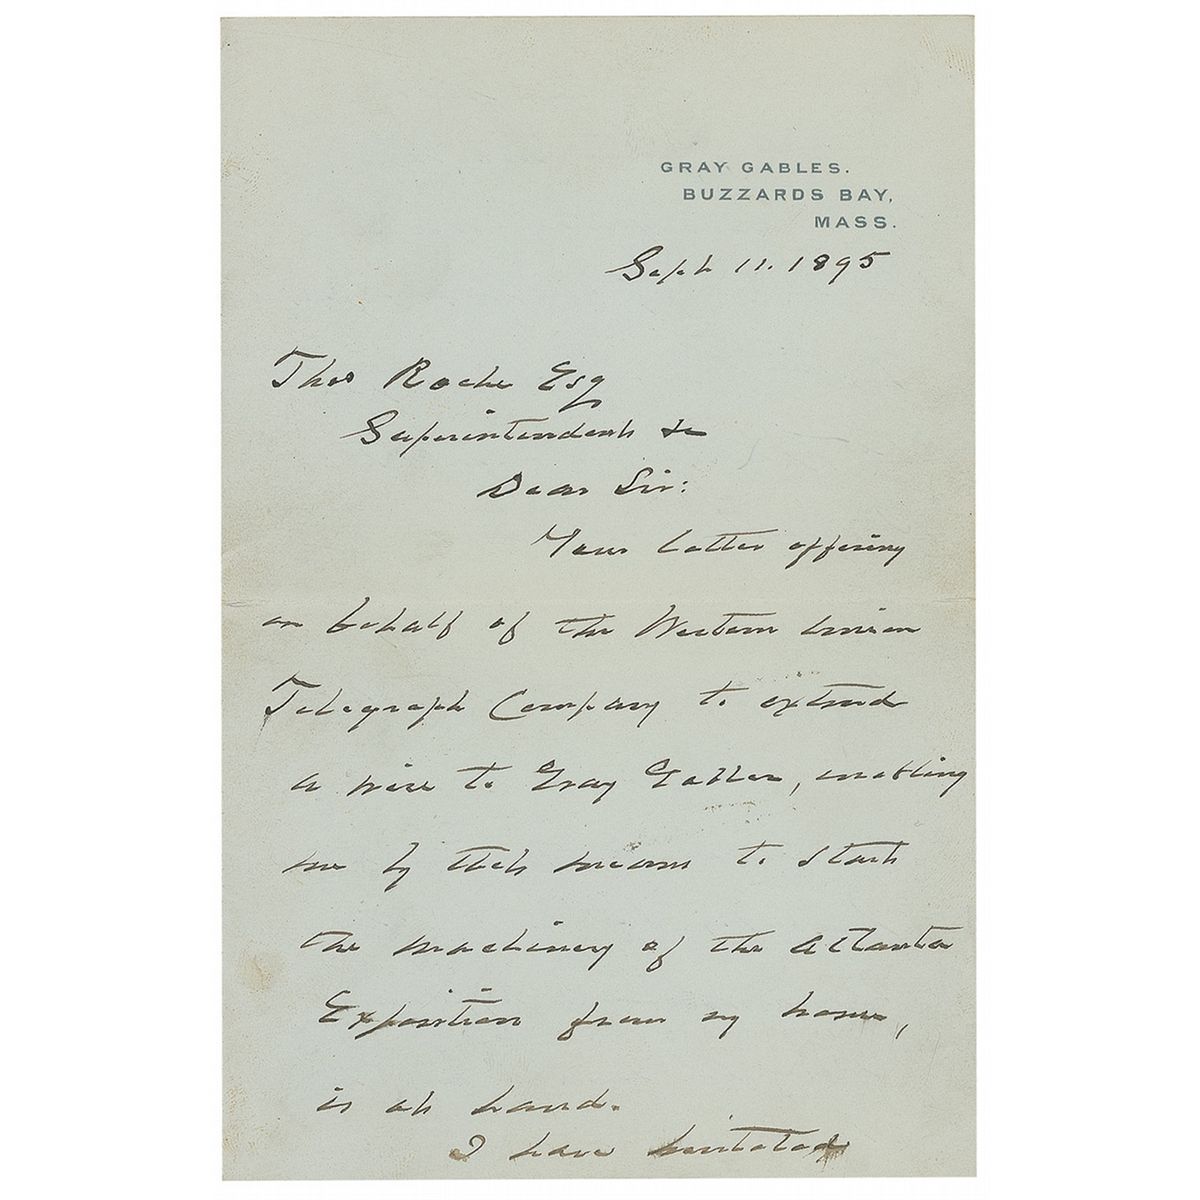 GRAY GABLES.
BUZZARDS BAY,
MASS.
Sept 11. 1895
Thos Roche Esq
Superintendent &c
Dear Sir:
Your letter offering
on behalf of the Western Union
Telegraph Company to extend
a wire to Gray Gables, enabling
me by that means to start
the machinery of the Atlanta
Exposition from my home,
is at hand.
I have hesitated